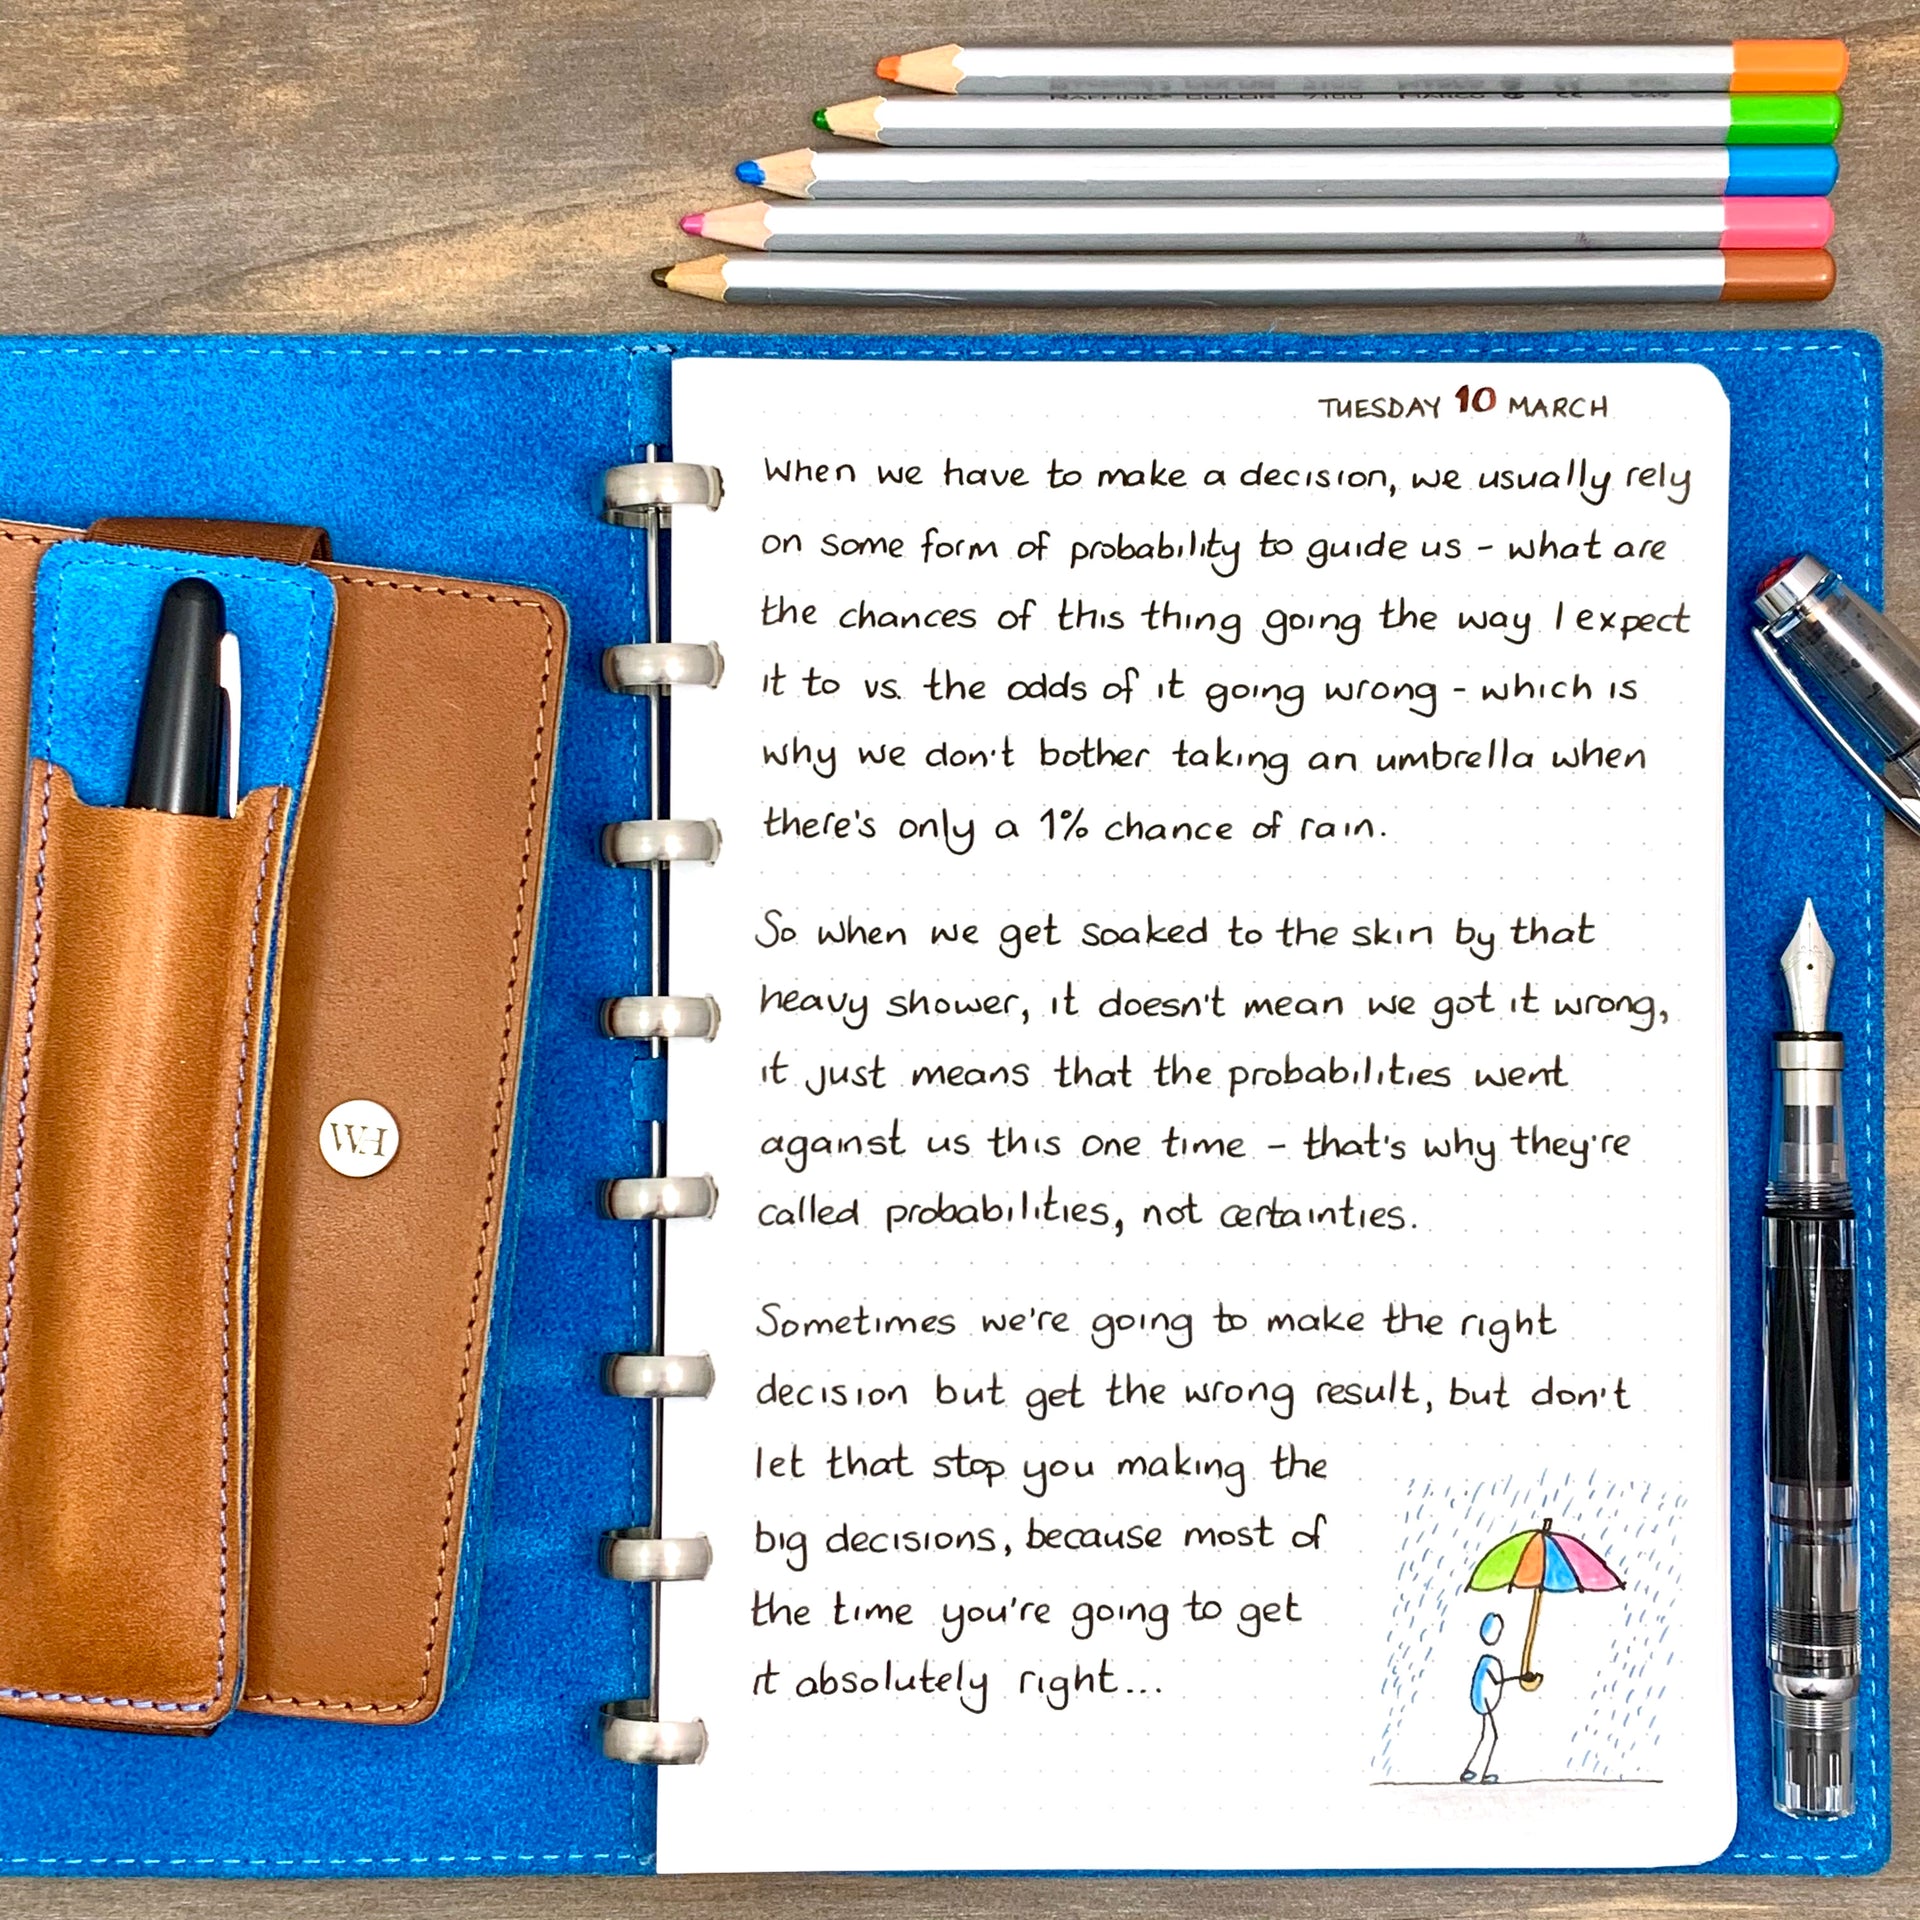 RAFFINE COLOR 7100 MARCO
TUESDAY 10 MARCH
When we have to make a decision, we usually rely
on some form of probability to guide us - what are
the chances of this thing going the way I expect
it to vs. the odds of it going wrong - which is
why we don't bother taking an umbrella when
there's only a 1% chance of rain.
So when we get soaked to the skin by that
heavy shower, it doesn't mean we got it wrong,
it just means that the probabilities went
against us this one time - that's why they're
called probabilities, not certainties.
Sometimes we're going to make the right
decision but get the wrong result, but don't
let that stop you making the
big decisions, because most of
the time you're going to get
it absolutely right...
WH